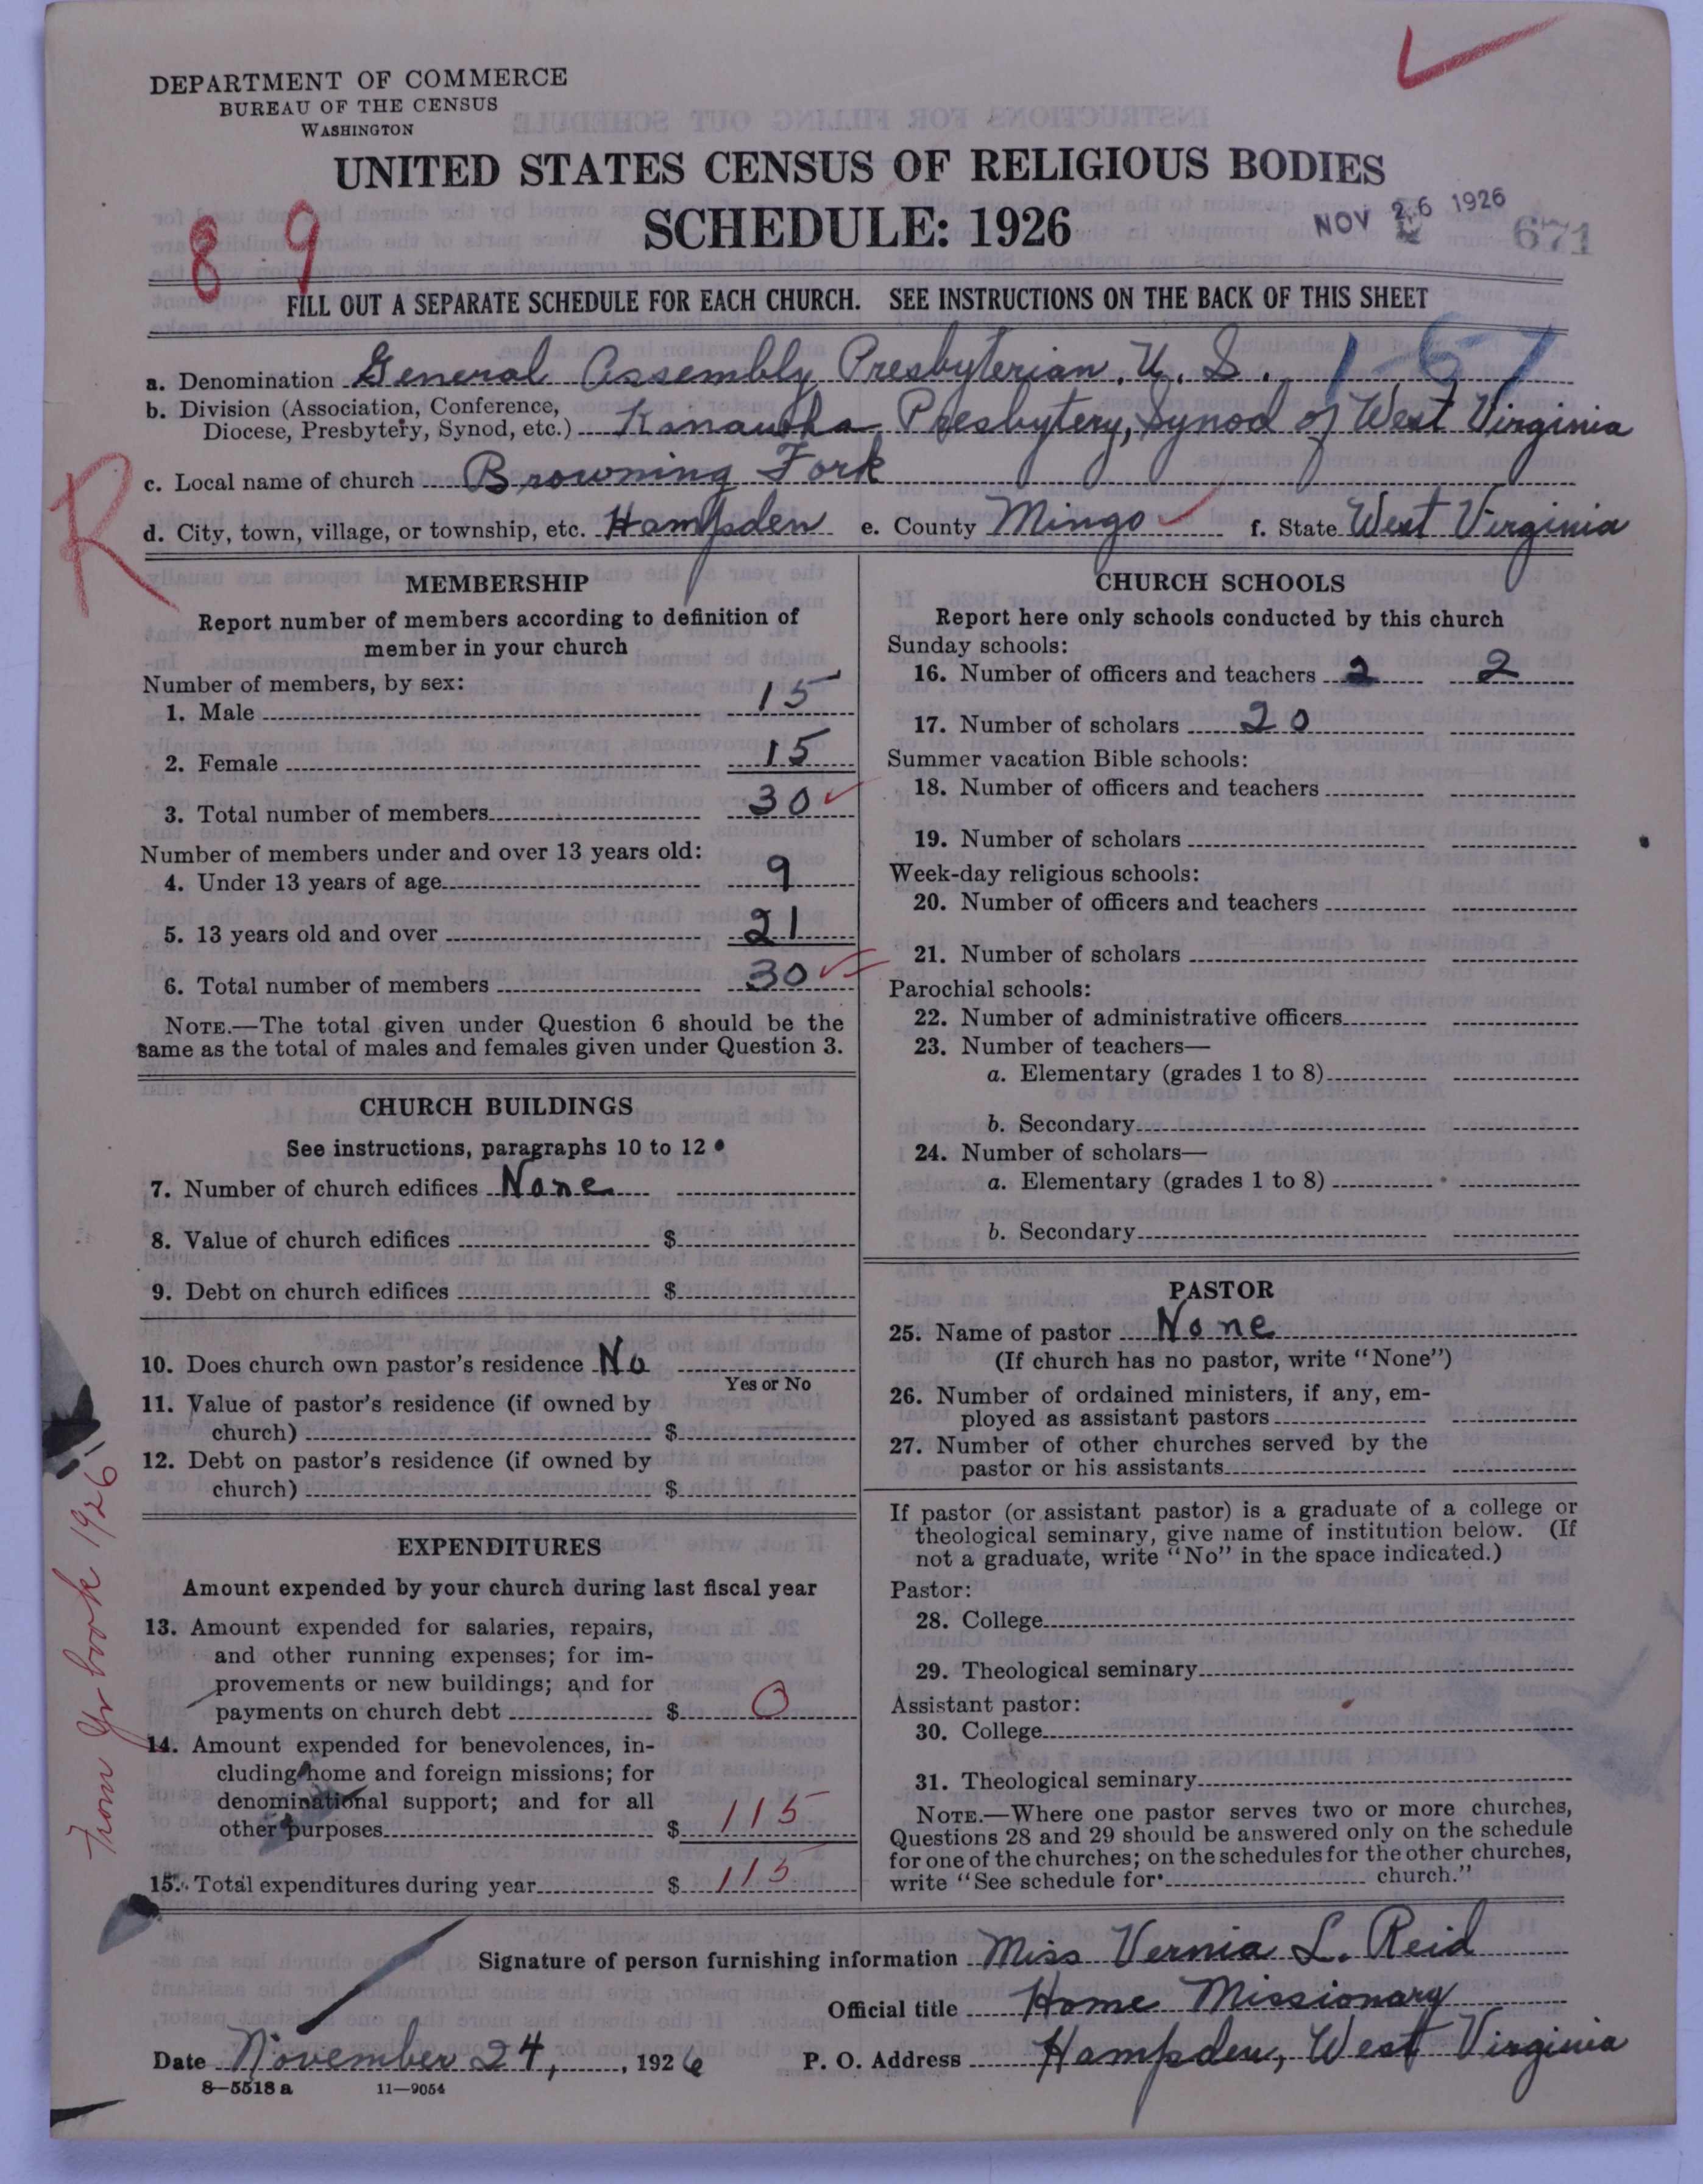 DEPARTMENT OF COMMERCE
BUREAU OF THE CENSUS
WASHINGTON
UNITED STATES CENSUS OF RELIGIOUS BODIES
SCHEDULE: 1926
NOV 26 1926
671
8 9
FILL OUT A SEPARATE SCHEDULE FOR EACH CHURCH. SEE INSTRUCTIONS ON THE BACK OF THIS SHEET
a. Denomination General Assembly Presbyterian. U. S. 1-67
b. Division (Association, Conference, Diocese, Presbytery, Synod, etc.) Kanawha Presbytery, Synod of West Virginia
c. Local name of church Browning Fork
R
d. City, town, village, or township, etc. Hampden e. County Mingo f. State West Virginia
MEMBERSHIP
Report number of members according to definition of
member in your church
Number of members, by sex:
1. Male 15
2. Female 15
3. Total number of members 30
Number of members under and over 13 years old:
4. Under 13 years of age 9
5. 13 years old and over 21
6. Total number of members 30
NOTE.—The total given under Question 6 should be the
same as the total of males and females given under Question 3.
CHURCH BUILDINGS
See instructions, paragraphs 10 to 12
7. Number of church edifices None
8. Value of church edifices $
9. Debt on church edifices $
10. Does church own pastor's residence No
Yes or No
11. Value of pastor's residence (if owned by
church) $
12. Debt on pastor's residence (if owned by
church) $
EXPENDITURES
Amount expended by your church during last fiscal year
13. Amount expended for salaries, repairs,
and other running expenses; for im-
provements or new buildings; and for
payments on church debt $ 0
14. Amount expended for benevolences, in-
cluding home and foreign missions; for
denominational support; and for all
other purposes $ 115
15. Total expenditures during year $ 115
From Yr book 1926
CHURCH SCHOOLS
Report here only schools conducted by this church
Sunday schools:
16. Number of officers and teachers 2 2
17. Number of scholars 20
Summer vacation Bible schools:
18. Number of officers and teachers
19. Number of scholars
Week-day religious schools:
20. Number of officers and teachers
21. Number of scholars
Parochial schools:
22. Number of administrative officers
23. Number of teachers—
a. Elementary (grades 1 to 8)
b. Secondary
24. Number of scholars—
a. Elementary (grades 1 to 8)
b. Secondary
PASTOR
25. Name of pastor None
(If church has no pastor, write "None")
26. Number of ordained ministers, if any, em-
ployed as assistant pastors
27. Number of other churches served by the
pastor or his assistants
If pastor (or assistant pastor) is a graduate of a college or
theological seminary, give name of institution below. (If
not a graduate, write "No" in the space indicated.)
Pastor:
28. College
29. Theological seminary
Assistant pastor:
30. College
31. Theological seminary
NOTE.—Where one pastor serves two or more churches,
Questions 28 and 29 should be answered only on the schedule
for one of the churches; on the schedules for the other churches,
write "See schedule for church."
Signature of person furnishing information Miss Vernia L. Reid
Official title Home Missionary
Date November 24, , 1926 P. O. Address Hampden, West Virginia
8—5518 a 11—9054